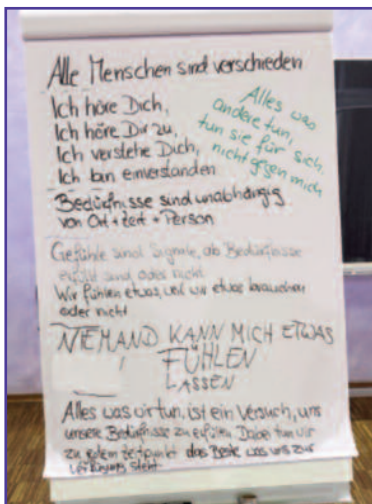 Alle Menschen sind verschieden
Ich höre Dich,
Ich höre Dir zu,
Ich verstehe Dich,
Ich bin einverstanden
Alles was
andere tun,
tun sie für sich,
nicht gegen mich
Bedürfnisse sind unabhängig
von Ort + Zeit + Person
Gefühle sind Signale, ob Bedürfnisse
erfüllt sind oder nicht
Wir fühlen etwas, weil wir etwas brauchen
oder nicht
NIEMAND KANN MICH ETWAS
FÜHLEN
LASSEN
Alles was wir tun, ist ein Versuch, uns
unsere Bedürfnisse zu erfüllen. Dabei tun wir
zu jedem Zeitpunkt das Beste was uns zur
Verfügung steht